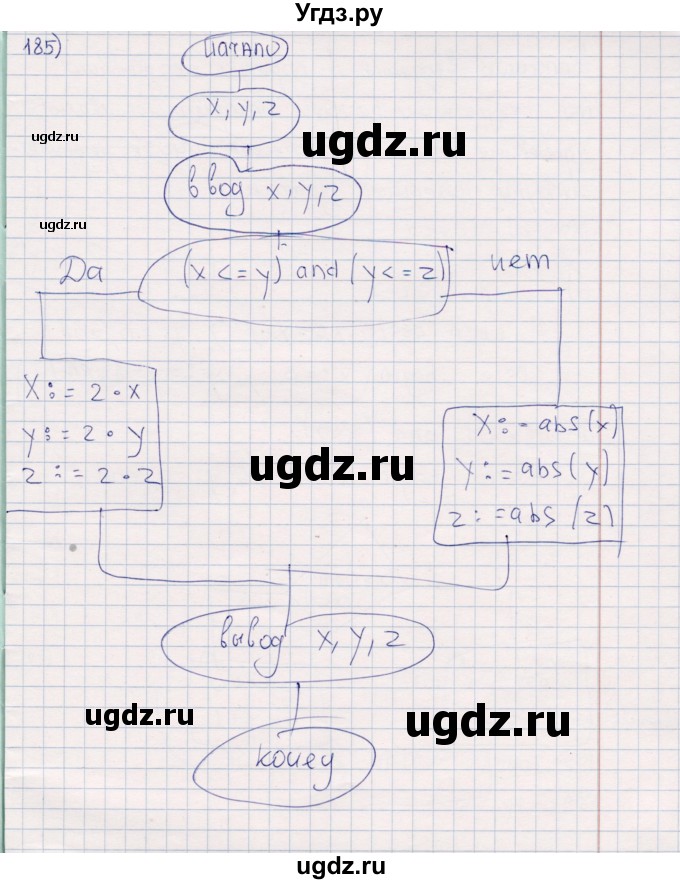 Угдз.ру
185)
начало
x, y, z
ugdz.ru
ugdz.ru
ввод x, y, z
ugdz.ru
Да
(x <= y) and (y <= z)
нет
ugdz.ru
x := 2 · x
y := 2 · y
z := 2 · z
x := abs(x)
y := abs(y)
z := abs(z)
ugdz.ru
ugdz.ru
ugdz.ru
вывод x, y, z
ugdz.ru
ugdz.ru
конец
ugdz.ru